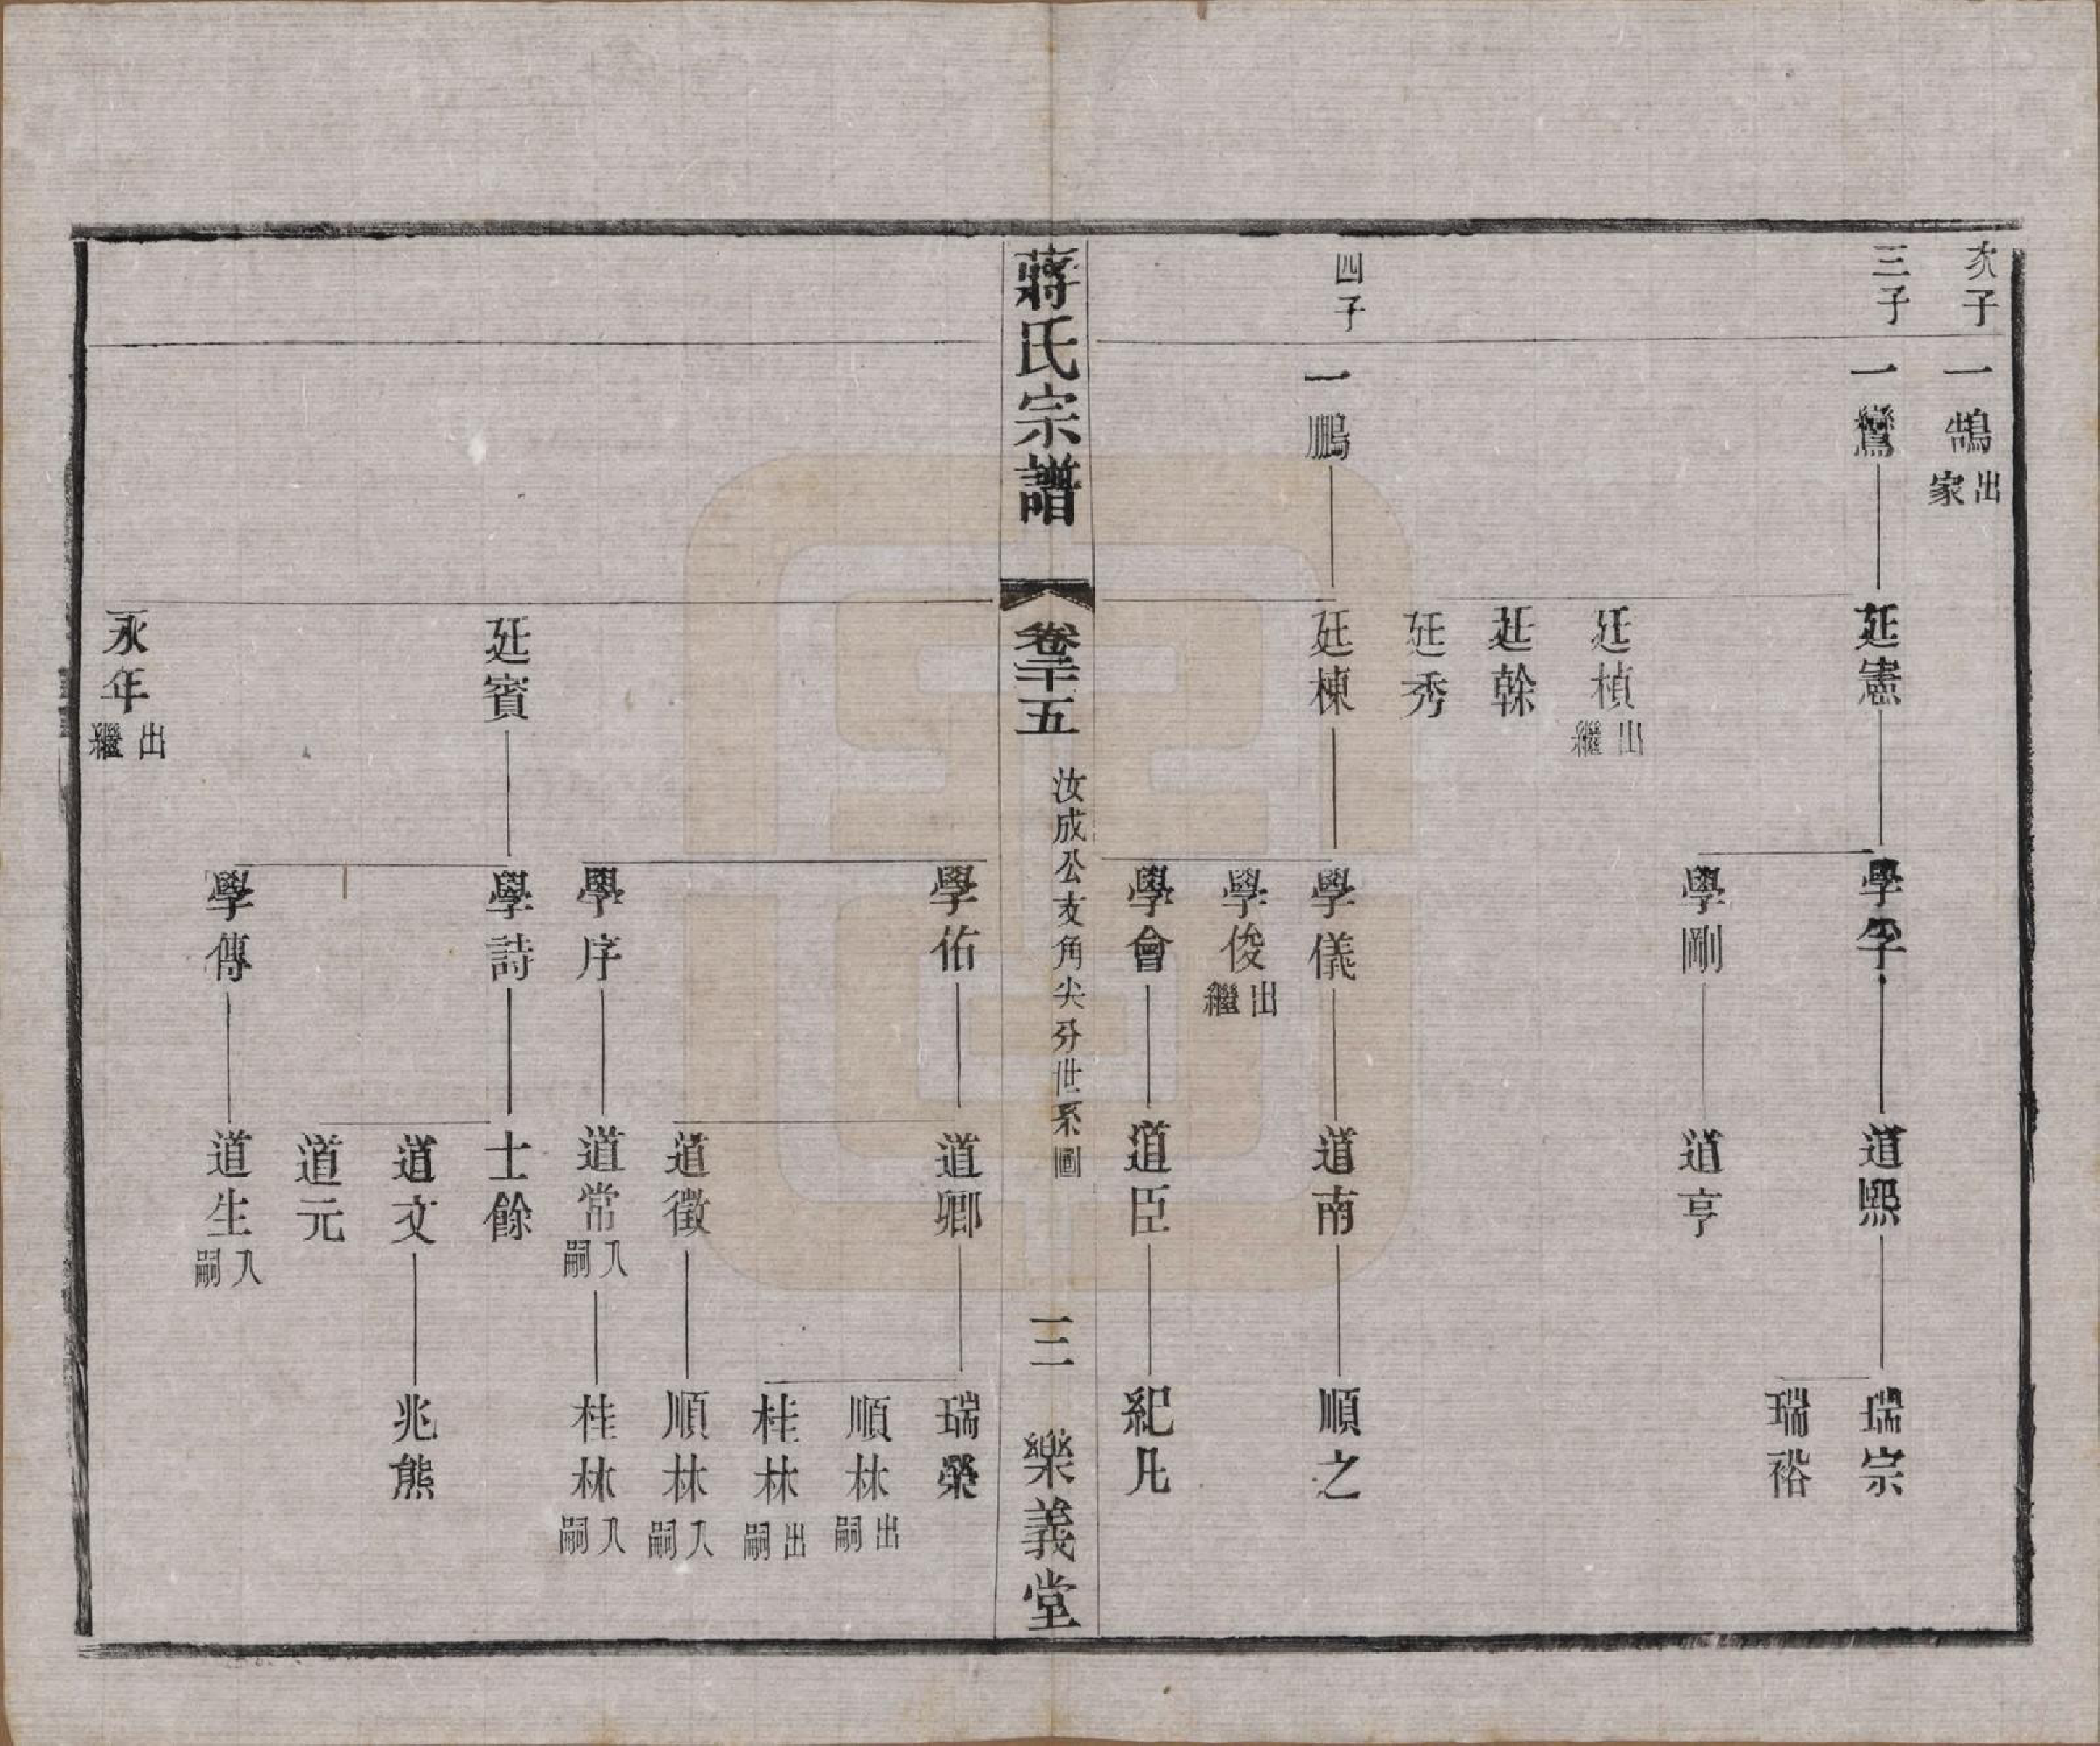 次子
一鵠出家
三子
一鸞
廷憲
學孚
道熙
瑞宗
瑞裕
學剛
道亨
廷楨出繼
廷榦
廷秀
四子
一鵬
廷棟
學儀
道南
順之
學俊出繼
學會
道臣
紀凡
蔣氏宗譜
卷三十五
汝成公支角尖分世系圖
三
樂義堂
學佑
道卿
瑞榮
順林出嗣
桂林出嗣
道徵
順林入嗣
學序
道常入嗣
桂林入嗣
廷賓
學詩
士餘
道文
兆熊
道元
學傳
道生入嗣
永年出繼